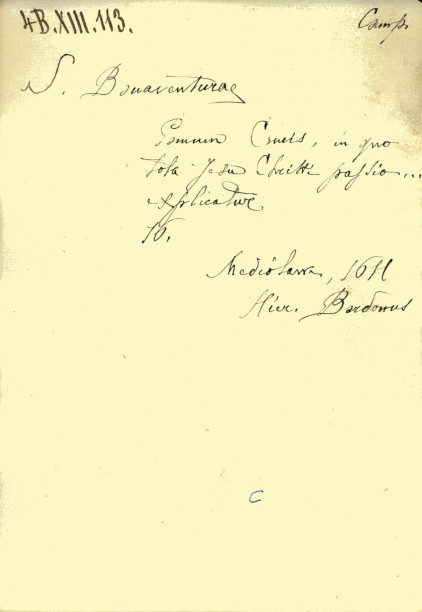 4B.XIII.113.
Camp.
S. Bonaventurae
Crucis, in quo
tota Jesu Christi passio...
explicatur
16.
1611
Hier. Bordonus
C